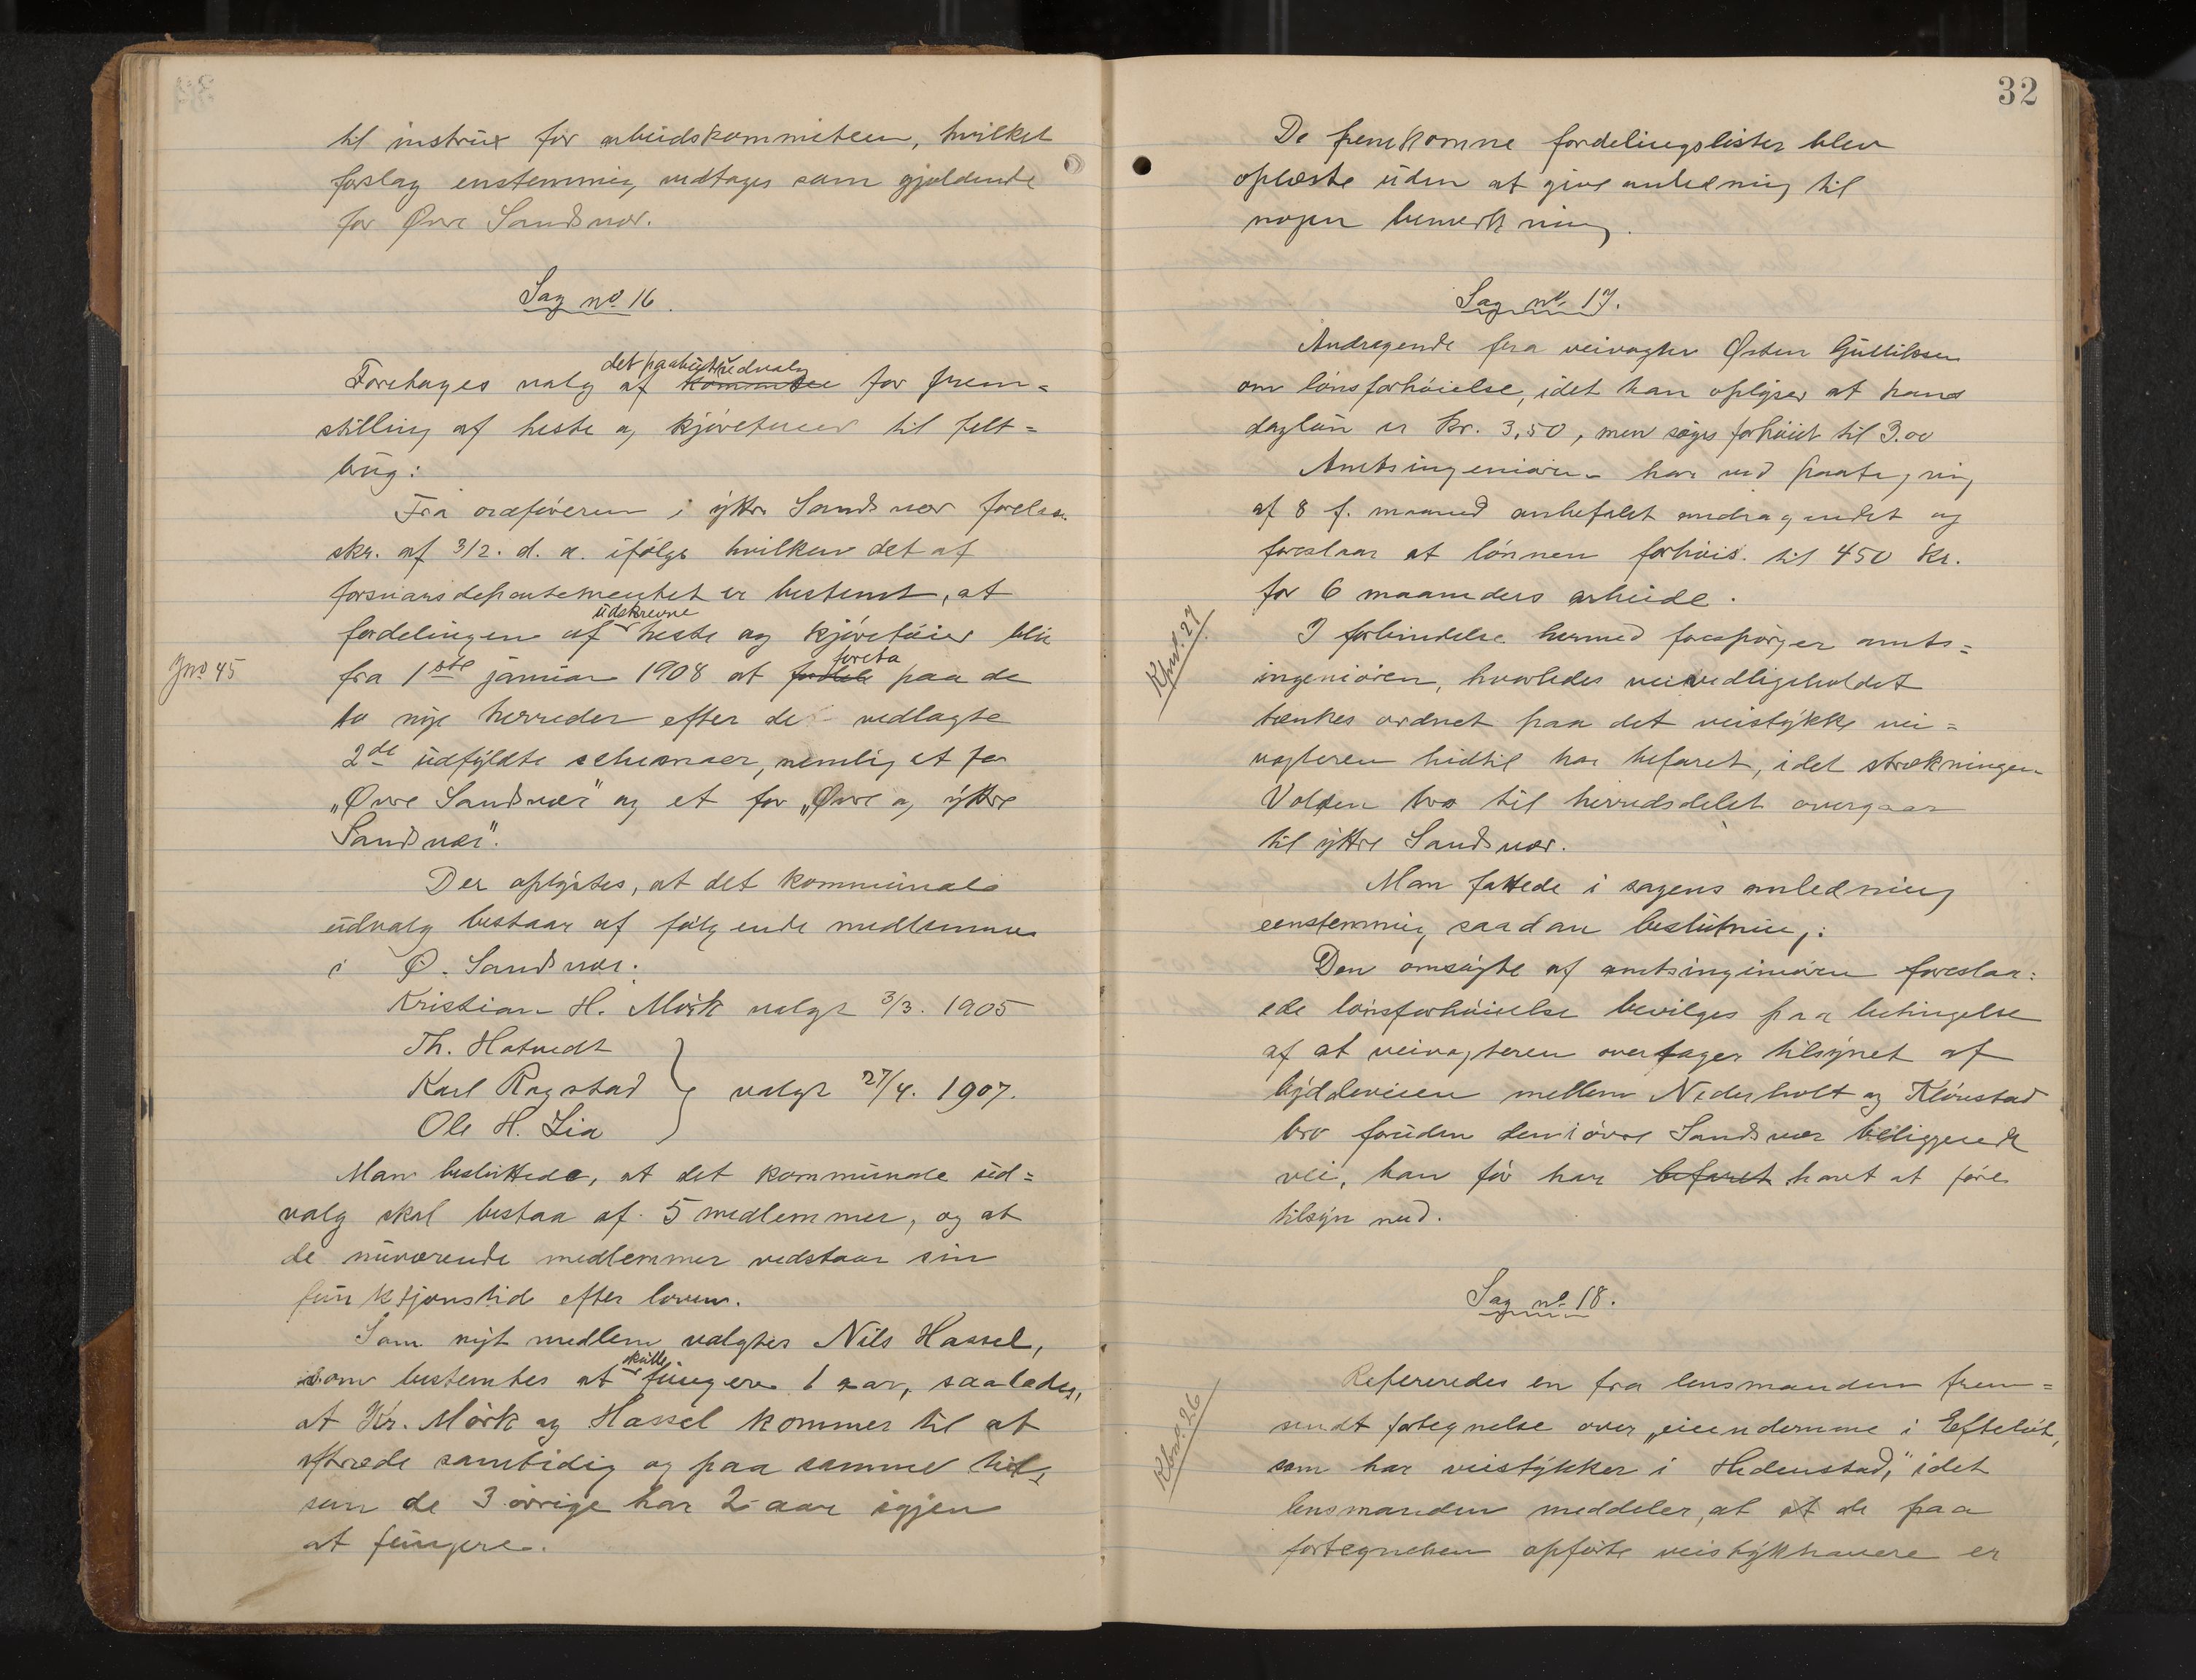 til instrux for arbeidskommiteen, hvilket
forslag enstemmig vedtages som gjældende
for Øvre Sandsvær.
Sag no 16.
det paabudte udvalg
Foretages valg af kommitee for frem=
stilling af heste og kjøretøier til felt=
brug:
Fra ordføreren i ytre Sandsvær forelaa
skr. af 3/2. d. a. ifølge hvilken det af
forsvarsdepartementet er bestemt, at
udskrevne
fordelingen af heste og kjøretøier blir
foreta
Jno 45
fra 1ste januar 1908 at paa de
to nye herreder efter de vedlagte
2de udfyldte schemaer, nemlig et for
„Øvre Sandsvær" og et for „Øvre og ytre
Sandsvær".
Der oplystes, at det kommunale
udvalg bestaar af følgende medlemmer
i Ø. Sandsvær.
Kristian H. Mörk valgt 3/3. 1905
Th. Hotvedt
Karl Ragstad } valgt 27/4. 1907.
Ole H. Lia
Man besluttede, at det kommunale ud=
valg skal bestaa af 5 medlemmer, og at
de nuværende medlemmer vedstaar sin
funktjonstid efter loven.
Som nyt medlem valgtes Nils Hassel,
skulle
som bestemtes at fungere 1 aar, saaledes,
at Kr. Mörk og Hassel kommer til at
aftræde samtidig og paa samme tid,
som de 3 övrige har 2 aar igjen
at fungere.
32
De fremkomne fordelingslister blev
oplæste uden at give anledning til
nogen bemerkning.
Sag no 17.
Andragende fra veivogter Østen Gullikssen
om lönsforhöielse, idet han oplyser at hans
daglön er Kr. 3,50, men söges forhöiet til 3.00
Amtsingeniören har ved paategning
af 8 f. maaned anbefalet andragendet og
foreslaar at lönnen forhöies til 450 Kr.
for 6 maaneders arbeide.
Kbno. 27
I forbindelse hermed forespörger amts=
ingeniören, hvorledes veivedligeholdet
tænkes ordnet paa det veistykke vei=
vogteren hidtil har befaret, idet strækningen
Volden bro til herredsdelet overgaar
til ytre Sandsvær.
Man fattede i sagens anledning
eenstemmig saadan beslutning:
Den omsögte af amtsingeniören foreslaa=
ede lönsforhöielse bevilges paa betingelse
af at veivogteren overtager tilsynet af
bygdeveien mellem Nederholt og Klövstad
bro foruden den i övre Sandsvær beliggende
vei, han för har befaret havt at före
tilsyn med.
Sag no 18.
Refereredes en fra lensmanden frem=
Kbno. 26
sendt fortegnelse over „eiendomme i Efteløt,
som har veistykker i Hedenstad," idet
lensmanden meddeler, at at de paa
fortegnelsen opförte veistykkhavere er